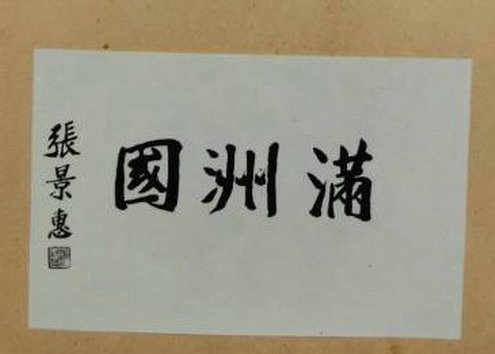 滿洲國
張景惠